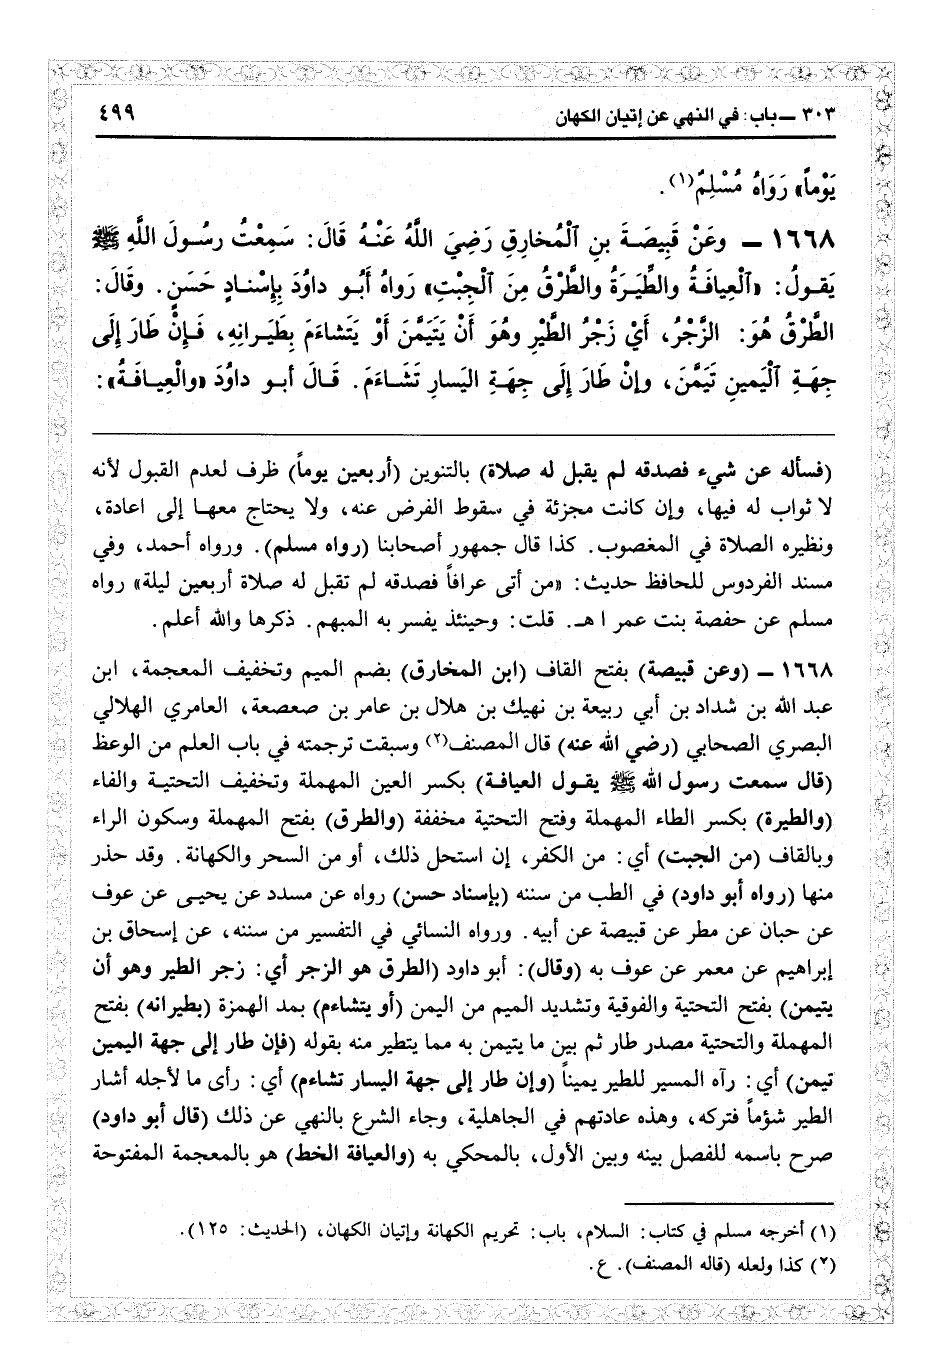 ٣٠٣ ــ باب: في النهي عن إتيان الكهان ٤٩٩
يَوْماً» رَوَاهُ مُسْلِمٌ(١).
١٦٦٨ ــ وعَنْ قَبِيصَةَ بنِ ٱلْمُخارِقِ رَضِيَ اللَّهُ عَنْهُ قَالَ: سَمِعْتُ رسُولَ اللَّهِ ﷺ
يَقولُ: «ٱلْعِيافَةُ والطِّيَرَةُ والطَّرْقُ مِنَ ٱلْجِبْتِ» رَواهُ أَبُو داوُدَ بِإِسْنادٍ حَسَنٍ. وقَالَ:
الطَّرْقُ هُوَ: الزَّجْرُ، أَيْ زَجْرُ الطَّيْرِ وهُوَ أَنْ يَتَيَمَّنَ أَوْ يَتَشاءَمَ بِطَيَرانِهِ، فَإِنْ طَارَ إِلَى
جِهَةِ ٱلْيَمينِ تَيَمَّنَ، وإنْ طَارَ إِلَى جِهَةِ اليَسارِ تَشَاءَمَ. قَالَ أبو داوُدَ «والْعِيافَةُ»:
(فسأله عن شيء فصدقه لم يقبل له صلاة) بالتنوين (أربعين يوماً) ظرف لعدم القبول لأنه
لا ثواب له فيها، وإن كانت مجزئة في سقوط الفرض عنه، ولا يحتاج معها إلى اعادة،
ونظيره الصلاة في المغصوب. كذا قال جمهور أصحابنا (رواه مسلم). ورواه أحمد، وفي
مسند الفردوس للحافظ حديث: «من أتى عرافاً فصدقه لم تقبل له صلاة أربعين ليلة» رواه
مسلم عن حفصة بنت عمر ا هـ. قلت: وحينئذ يفسر به المبهم. ذكرها والله أعلم.
١٦٦٨ ــ (وعن قبيصة) بفتح القاف (ابن المخارق) بضم الميم وتخفيف المعجمة، ابن
عبد الله بن شداد بن أبي ربيعة بن نهيك بن هلال بن عامر بن صعصعة، العامري الهلالي
البصري الصحابي (رضي الله عنه) قال المصنف(٢) وسبقت ترجمته في باب العلم من الوعظ
(قال سمعت رسول الله ﷺ يقول العيافة) بكسر العين المهملة وتخفيف التحتية والفاء
(والطيرة) بكسر الطاء المهملة وفتح التحتية مخففة (والطرق) بفتح المهملة وسكون الراء
وبالقاف (من الجبت) أي: من الكفر، إن استحل ذلك، أو من السحر والكهانة. وقد حذر
منها (رواه أبو داود) في الطب من سننه (بإسناد حسن) رواه عن مسدد عن يحيى عن عوف
عن حبان عن مطر عن قبيصة عن أبيه. ورواه النسائي في التفسير من سننه، عن إسحاق بن
إبراهيم عن معمر عن عوف به (وقال): أبو داود (الطرق هو الزجر أي: زجر الطير وهو أن
يتيمن) بفتح التحتية والفوقية وتشديد الميم من اليمن (أو يتشاءم) بمد الهمزة (بطيرانه) بفتح
المهملة والتحتية مصدر طار ثم بين ما يتيمن به مما يتطير منه بقوله (فإن طار إلى جهة اليمين
تيمن) أي: رآه المسير للطير يميناً (وإن طار إلى جهة اليسار تشاءم) أي: رأى ما لأجله أشار
الطير شؤماً فتركه، وهذه عادتهم في الجاهلية، وجاء الشرع بالنهي عن ذلك (قال أبو داود)
صرح باسمه للفصل بينه وبين الأول، بالمحكي به (والعيافة الخط) هو بالمعجمة المفتوحة
(١) أخرجه مسلم في كتاب: السلام، باب: تحريم الكهانة وإتيان الكهان، (الحديث: ١٢٥).
(٢) كذا ولعله (قاله المصنف). ع.